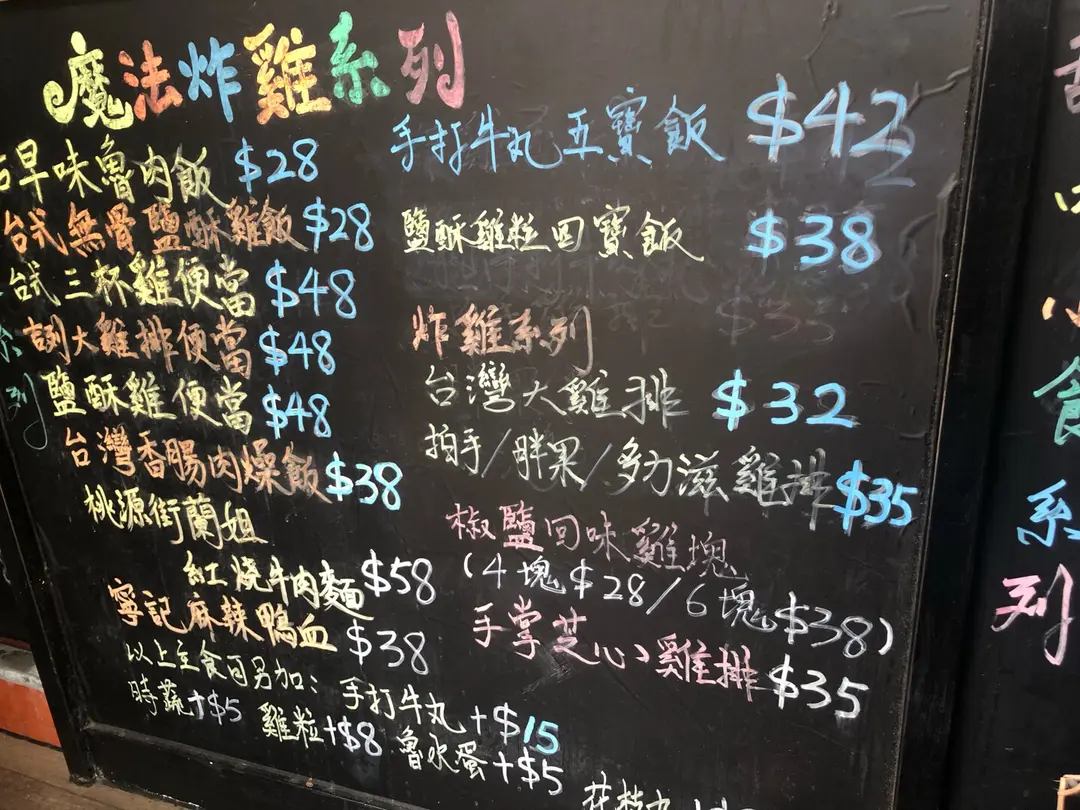 魔法炸雞系列
古早味魯肉飯 $28
台式無骨鹽酥雞飯 $28
台式三杯雞便當 $48
大雞排便當 $48
鹽酥雞便當 $48
台灣香腸肉燥飯 $38
桃源街蘭姐
紅燒牛肉麵 $58
寧記麻辣鴨血 $38
以上主食可另加：手打牛丸+$15
時蔬+$5 雞粒+$8 魯水蛋+$5
手打牛丸五寶飯 $42
鹽酥雞粒四寶飯 $38
炸雞系列
台灣大雞排 $32
拍手/胖果/多力滋雞排 $35
椒鹽回味雞塊
(4塊$28/6塊$38)
手掌芝心雞排 $35
食
系
列